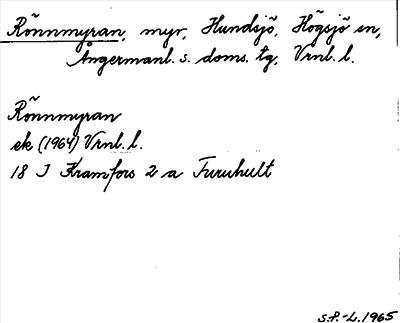 Rönnmyran, myr, Hundsjö, Högsjö sn,
Ångermanl. s. doms. tg, Vrnl. l.
Rönnmyran
ek (1964) Vrnl. l.
18 I Kramfors 2 a Furuhult
S.P.-L. 1965